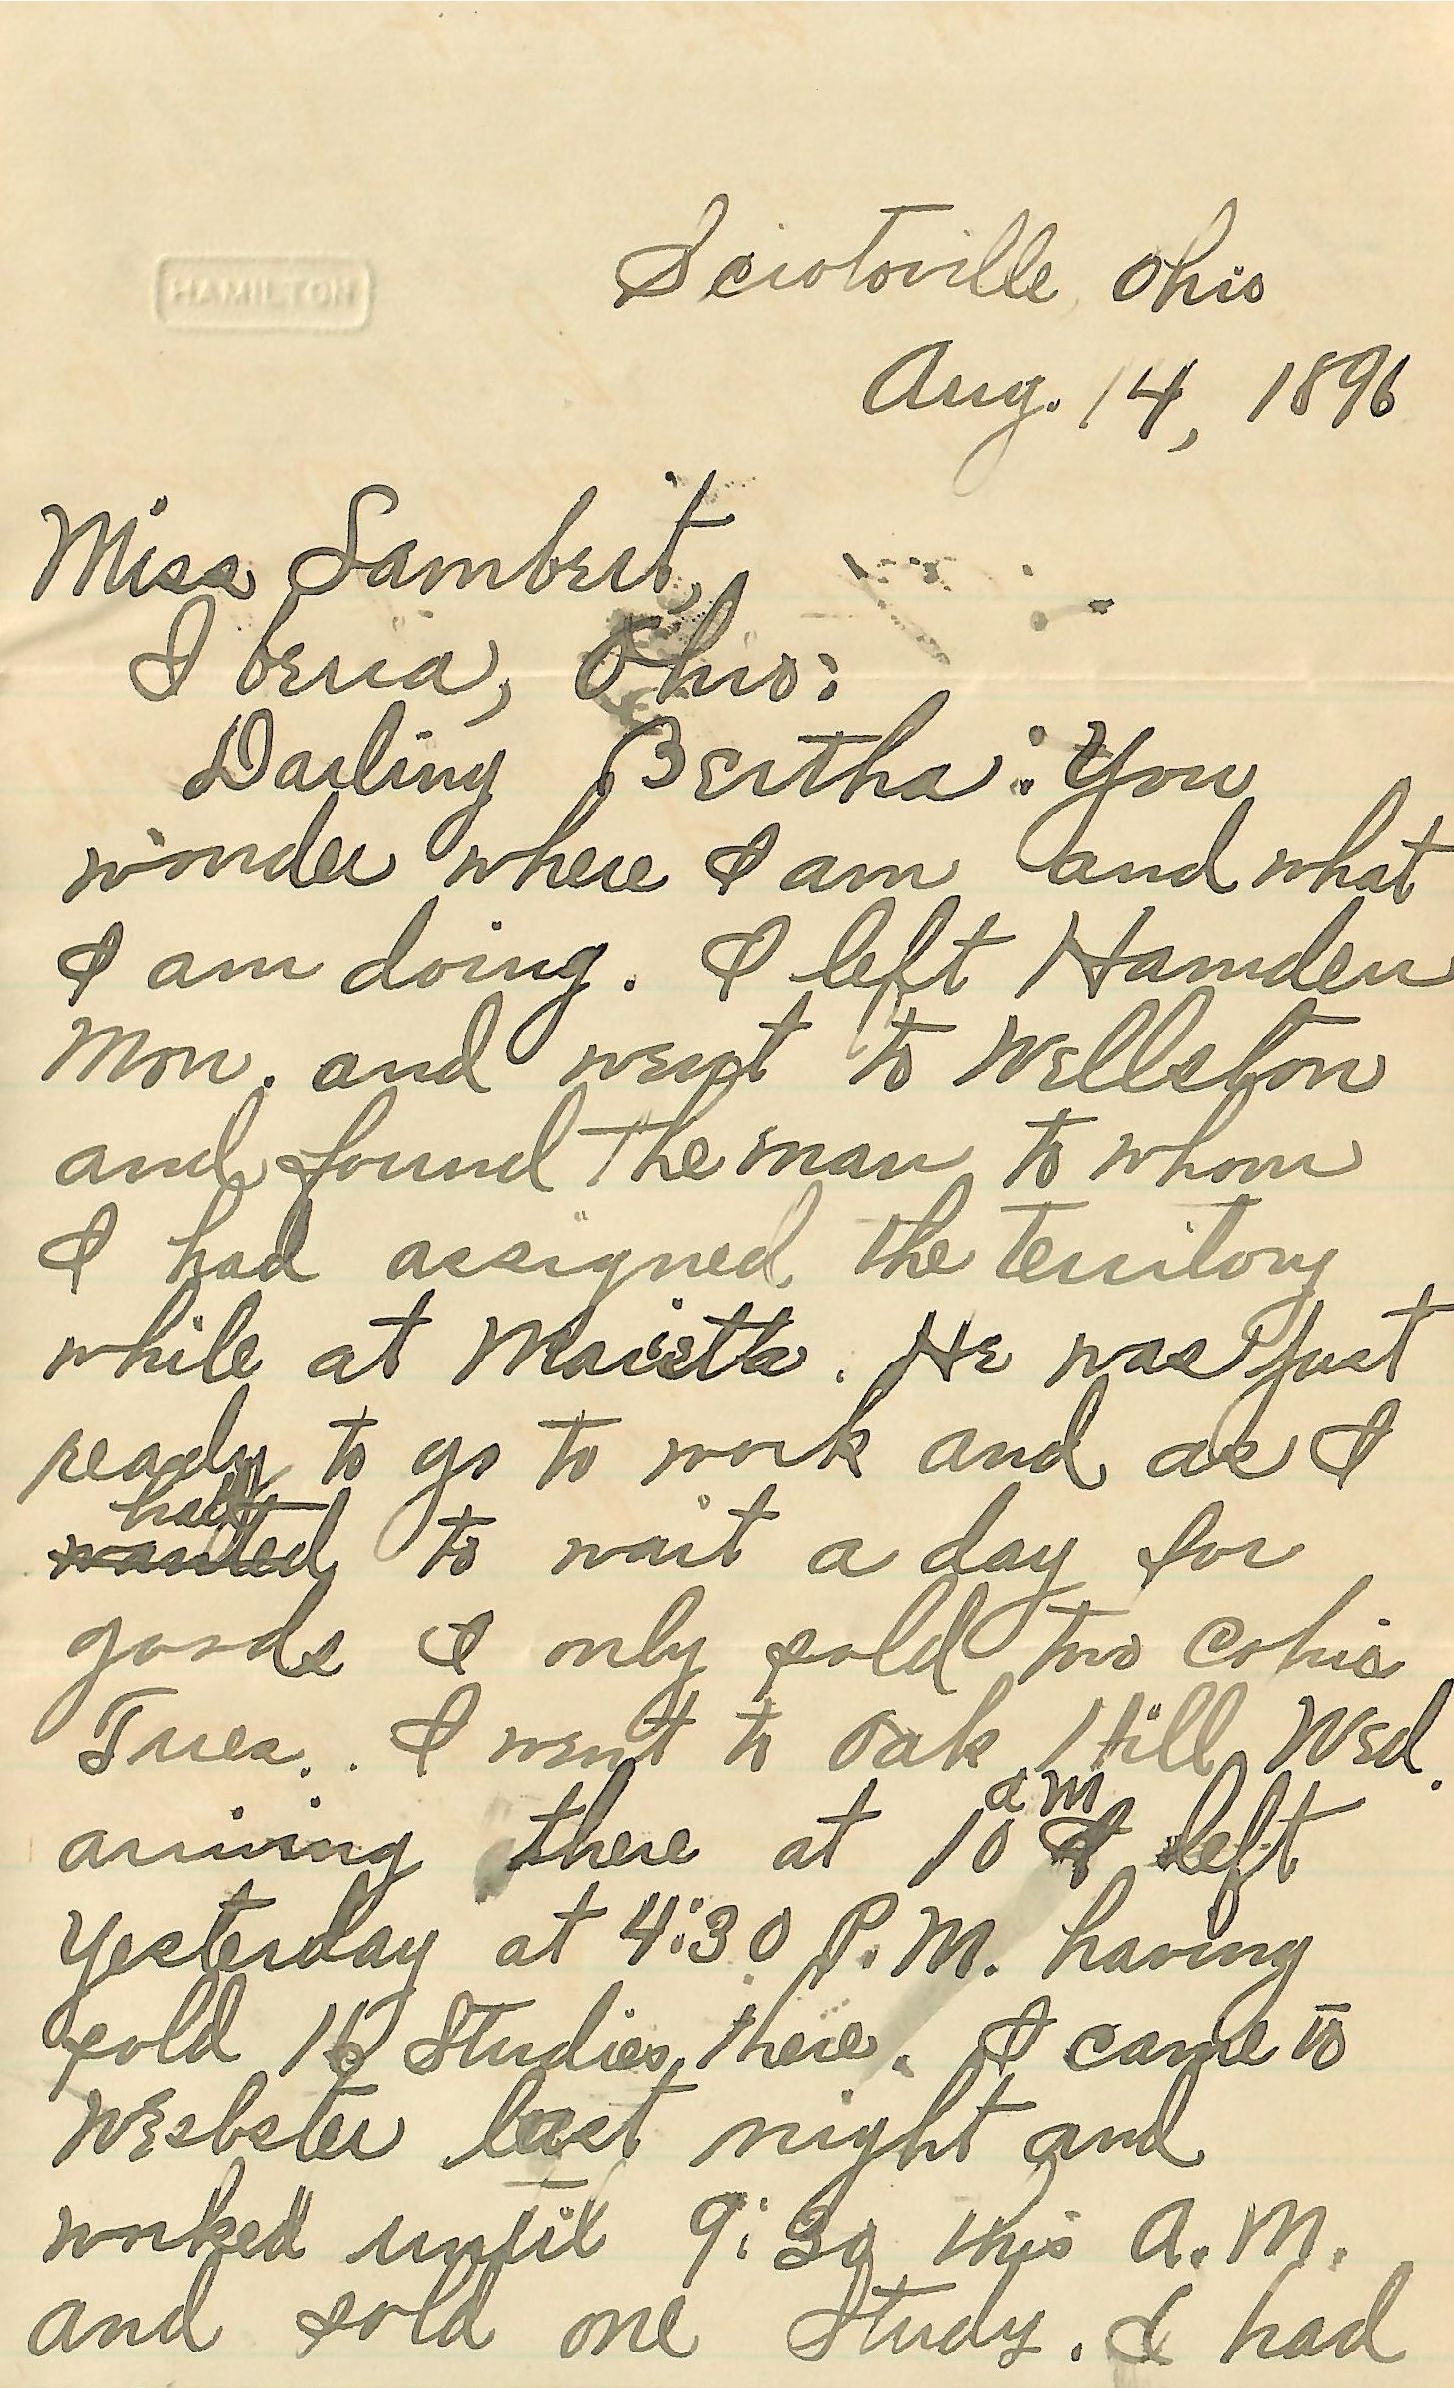 HAMILTON
Sciotoville, Ohio
Aug. 14, 1896
Miss Lambert,
Iberia, Ohio:
Darling Bertha: You
wonder where I am and what
I am doing. I left Hamden
Mon. and went to Wellston
and found the man to whom
I had assigned the territory
while at Marietta. He was just
ready to go to work and as I
had
wanted to wait a day for
goods I only sold two
Tues. I went to Oak Hill Wed.
am
arriving there at 10 I left
yesterday at 4:30 P.M. having
sold 16 Studies there. I came to
Webster last night and
worked until 9:30 this A.M.
and sold one Study. I had